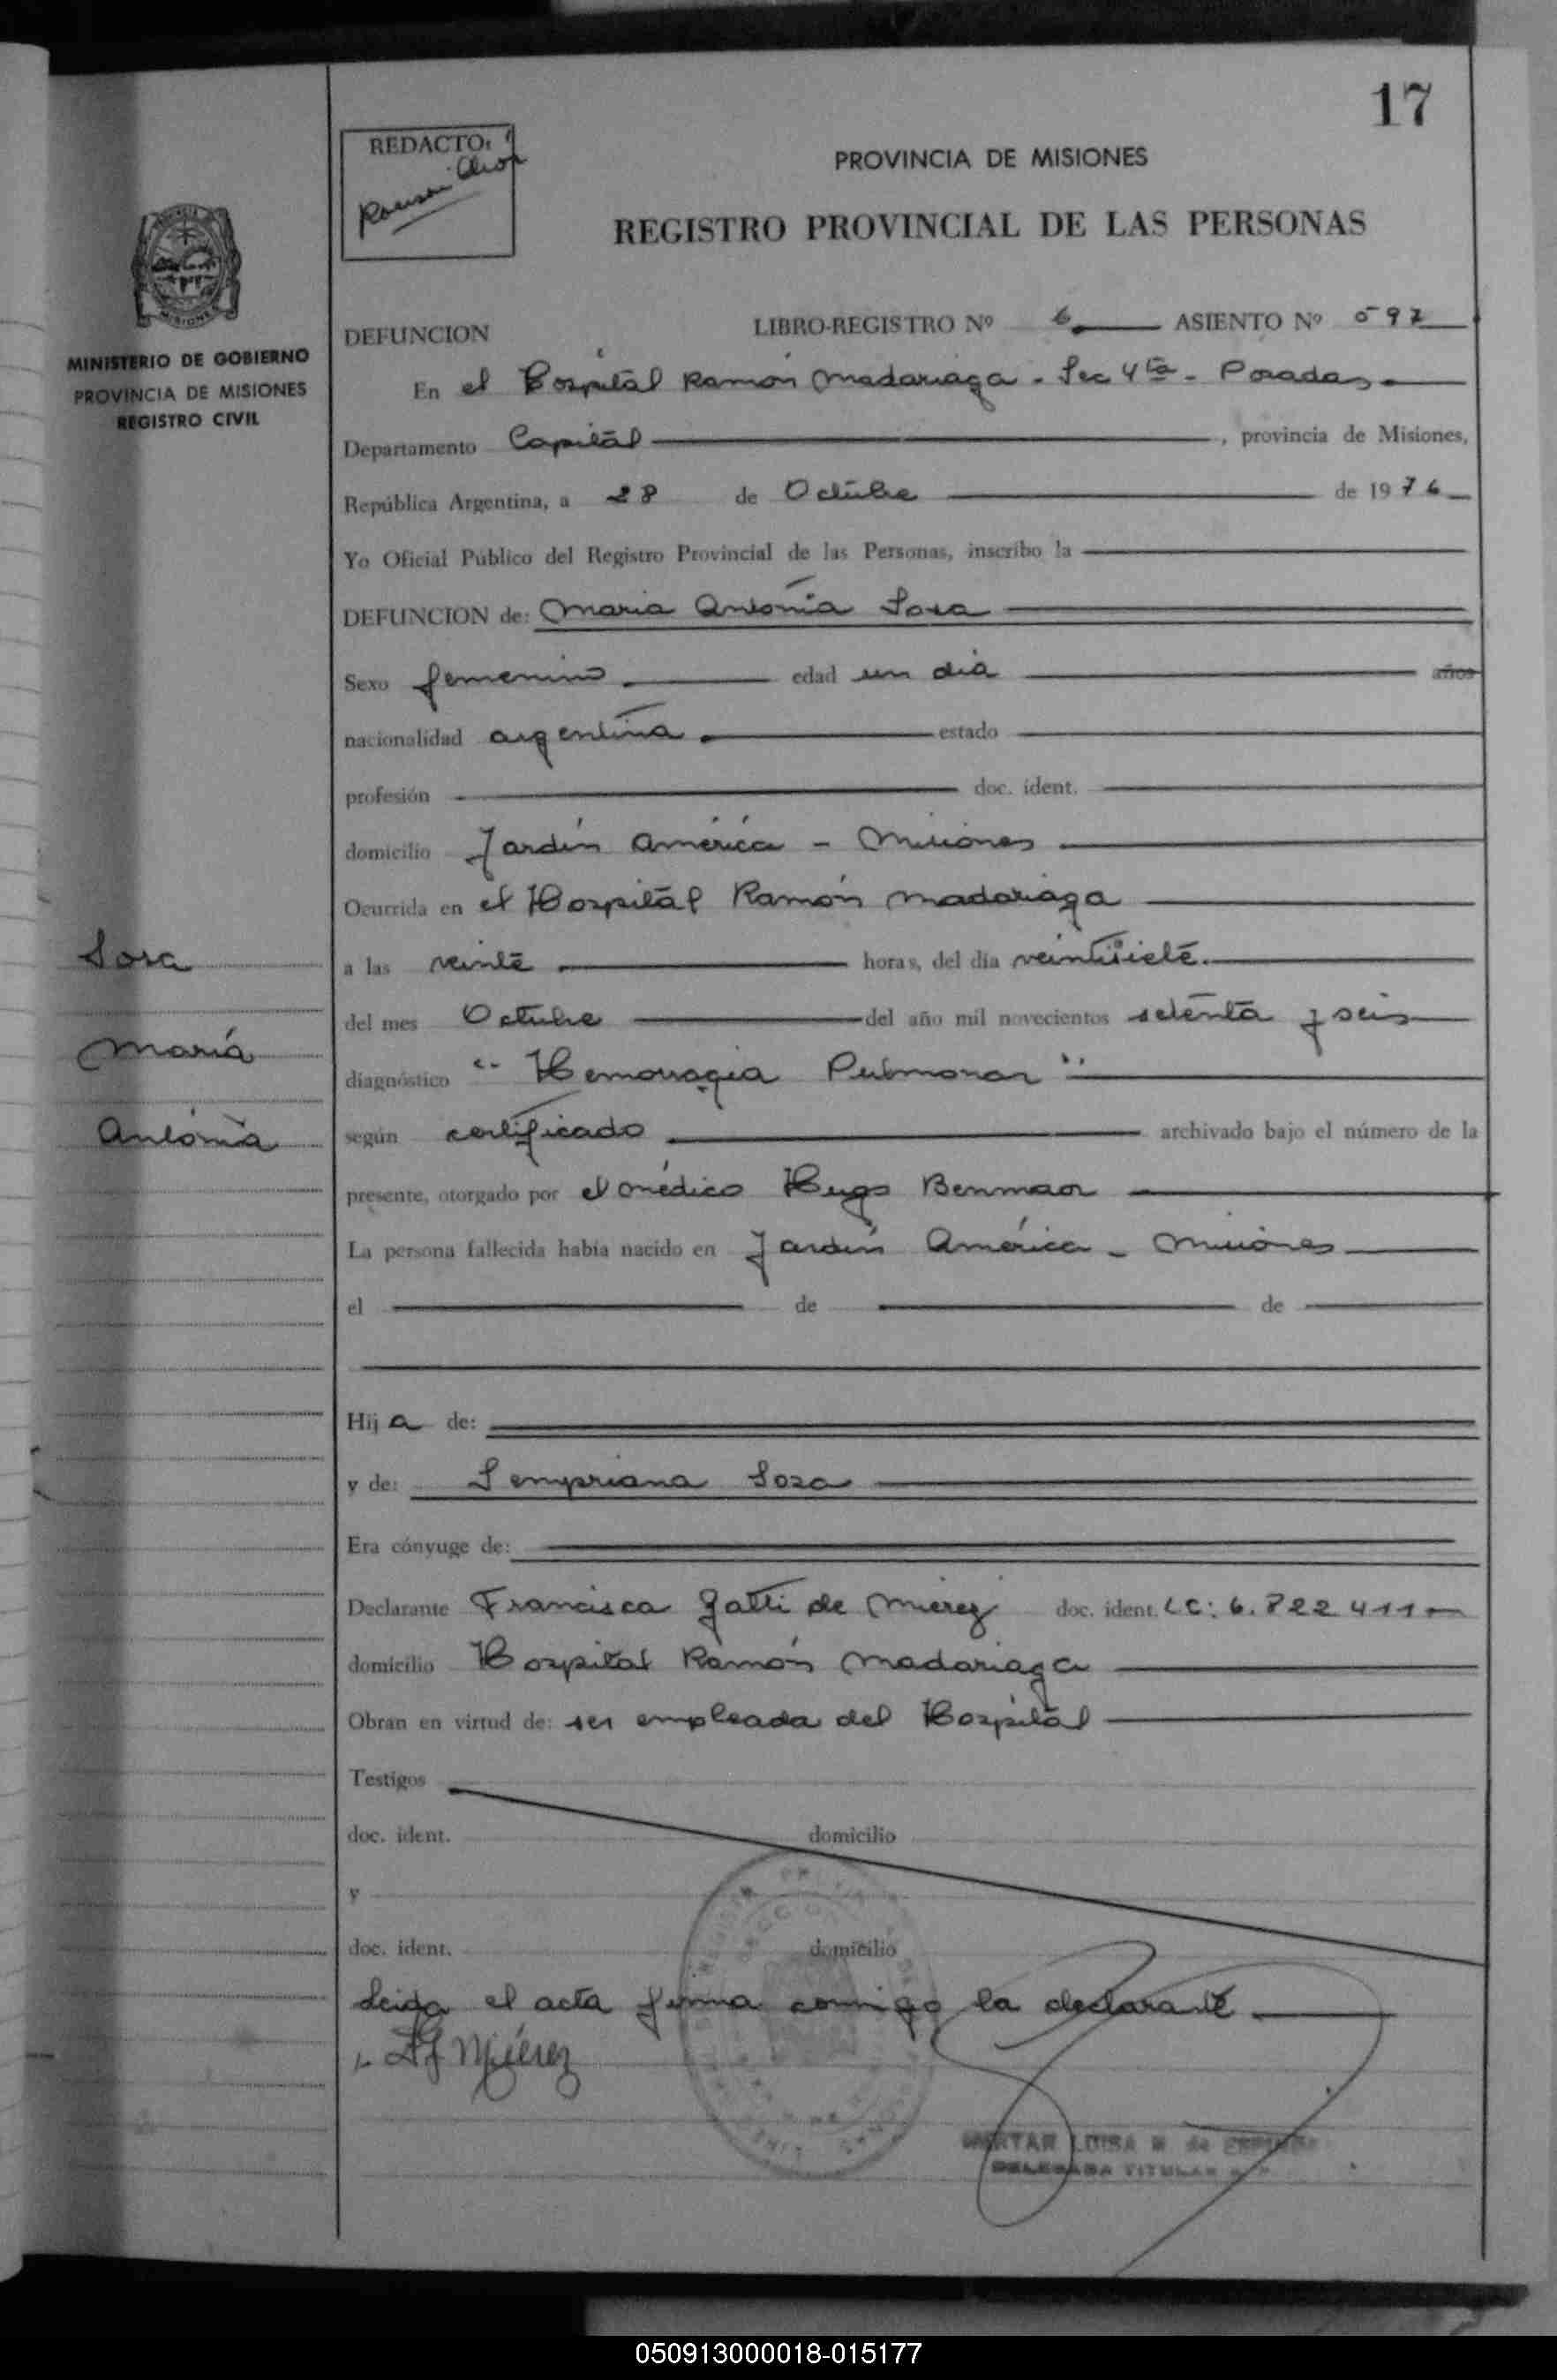 17
REDACTO:
PROVINCIA DE MISIONES
REGISTRO PROVINCIAL DE LAS PERSONAS
MISIONES
MINISTERIO DE GOBIERNO
PROVINCIA DE MISIONES
REGISTRO CIVIL
DEFUNCION LIBRO-REGISTRO Nº 6 ASIENTO Nº 597
En el Hospital Ramón Madariaga - Sec 4ta - Posadas
Departamento Capital, provincia de Misiones,
República Argentina, a 28 de Octubre de 1976
Yo Oficial Público del Registro Provincial de las Personas, inscribo la
DEFUNCION de: Maria Antonia Sosa
Sexo femenino edad un dia años
nacionalidad argentina estado
profesión doc. ident.
domicilio Jardín América - Misiones
Ocurrida en el Hospital Ramón Madariaga
Sosa
a las veinte horas, del día veintisiete
del mes Octubre del año mil novecientos setenta y seis
María
diagnóstico "Hemorragia Pulmonar"
Antonia
según certificado archivado bajo el número de la
presente, otorgado por el médico Hugo Benmaor
La persona fallecida había nacido en Jardín América - Misiones
el de de
Hija de:
y de: Sempriana Sosa
Era cónyuge de:
Declarante Francisca Gatti de Mierez doc. ident. LC: 6.822411
domicilio Hospital Ramón Madariaga
Obran en virtud de: ser empleada del Hospital
Testigos
doc. ident. domicilio
y
doc. ident. domicilio
Leida el acta firma conmigo la declarante
Mierez
LUISA
DELEGADA TITULAR
050913000018-015177